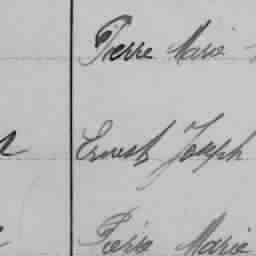 Pierre Marie
Ernest Joseph
Pierre Marie